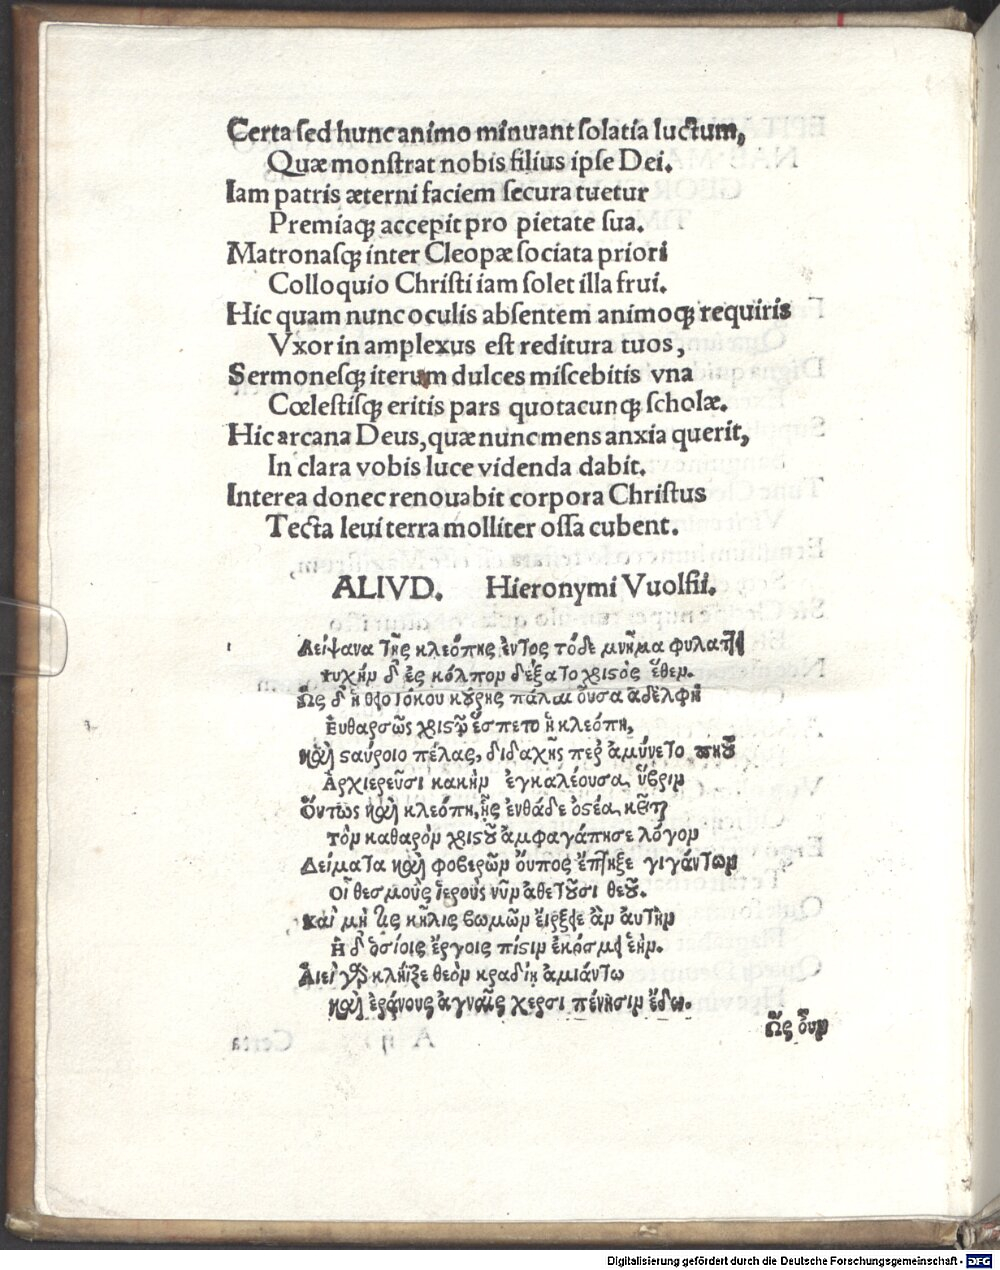 Certa sed hunc animo minuant solatia luctum,
Quæ monstrat nobis filius ipse Dei.
Iam patris æterni faciem secura tuetur
Premiaqꝫ accepit pro pietate sua.
Matronasqꝫ inter Cleopæ sociata priori
Colloquio Christi iam solet illa frui.
Hic quam nunc oculis absentem animoqꝫ requiris
Vxor in amplexus est reditura tuos,
Sermonesqꝫ iterum dulces miscebitis vna
Cœlestisqꝫ eritis pars quotacunqꝫ scholæ.
Hic arcana Deus, quæ nunc mens anxia querit,
In clara vobis luce videnda dabit.
Interea donec renouabit corpora Christus
Tecta leui terra molliter ossa cubent.
ALIVD. Hieronymi Vuolfii.
Λείψανα τῆς κλεόπης ἐντος τόδε μνῆμα φυλαττει
ψυχὴν δ' ἐς κόλπον δέξατο χριστὸς ἕθεν.
Ὣς δ' ἡ θεοτόκου κούρης πάλαι οὖσα ἀδελφὴ
Ἐυθαρσῶς χριστῷ ἕσπετο ἡ κλεόπη,
καὶ σταύροιο πέλας, διδαχῆς περ ἀμύνετο
Ἀρχιερεῦσι κακὴν ἐγκαλέουσα, ὕβριν
Ὅυτως καὶ κλεόπη, ἧς ἐνθάδε ὀστέα, κεῖται
τὸν καθαρὸν χριστοῦ ἀμφαγάπησε λόγον
Δείματα καὶ φοβερῶν ὄυπος ἔπτηξε γιγάντων
Οἳ θεσμοὺς ἱεροὺς νῦν ἀθετοῦσι θεοῦ.
Καὶ μή τις κηλὶς βωμῶν ἔιρξειε ἂν ἀυτὴν
Ἡ δ' ὁσίοις ἔργοις πίστιν ἐκόσμει ἑήν.
Ἀιεὶ γὰρ κλήϊζε θεὸν κραδίῃ ἀμιάντω
καὶ ἐράνους ἁγναῖς χερσι πένησιν ἔδω.
Ὣς οὖν
Digitalisierung gefördert durch die Deutsche Forschungsgemeinschaft - DFG